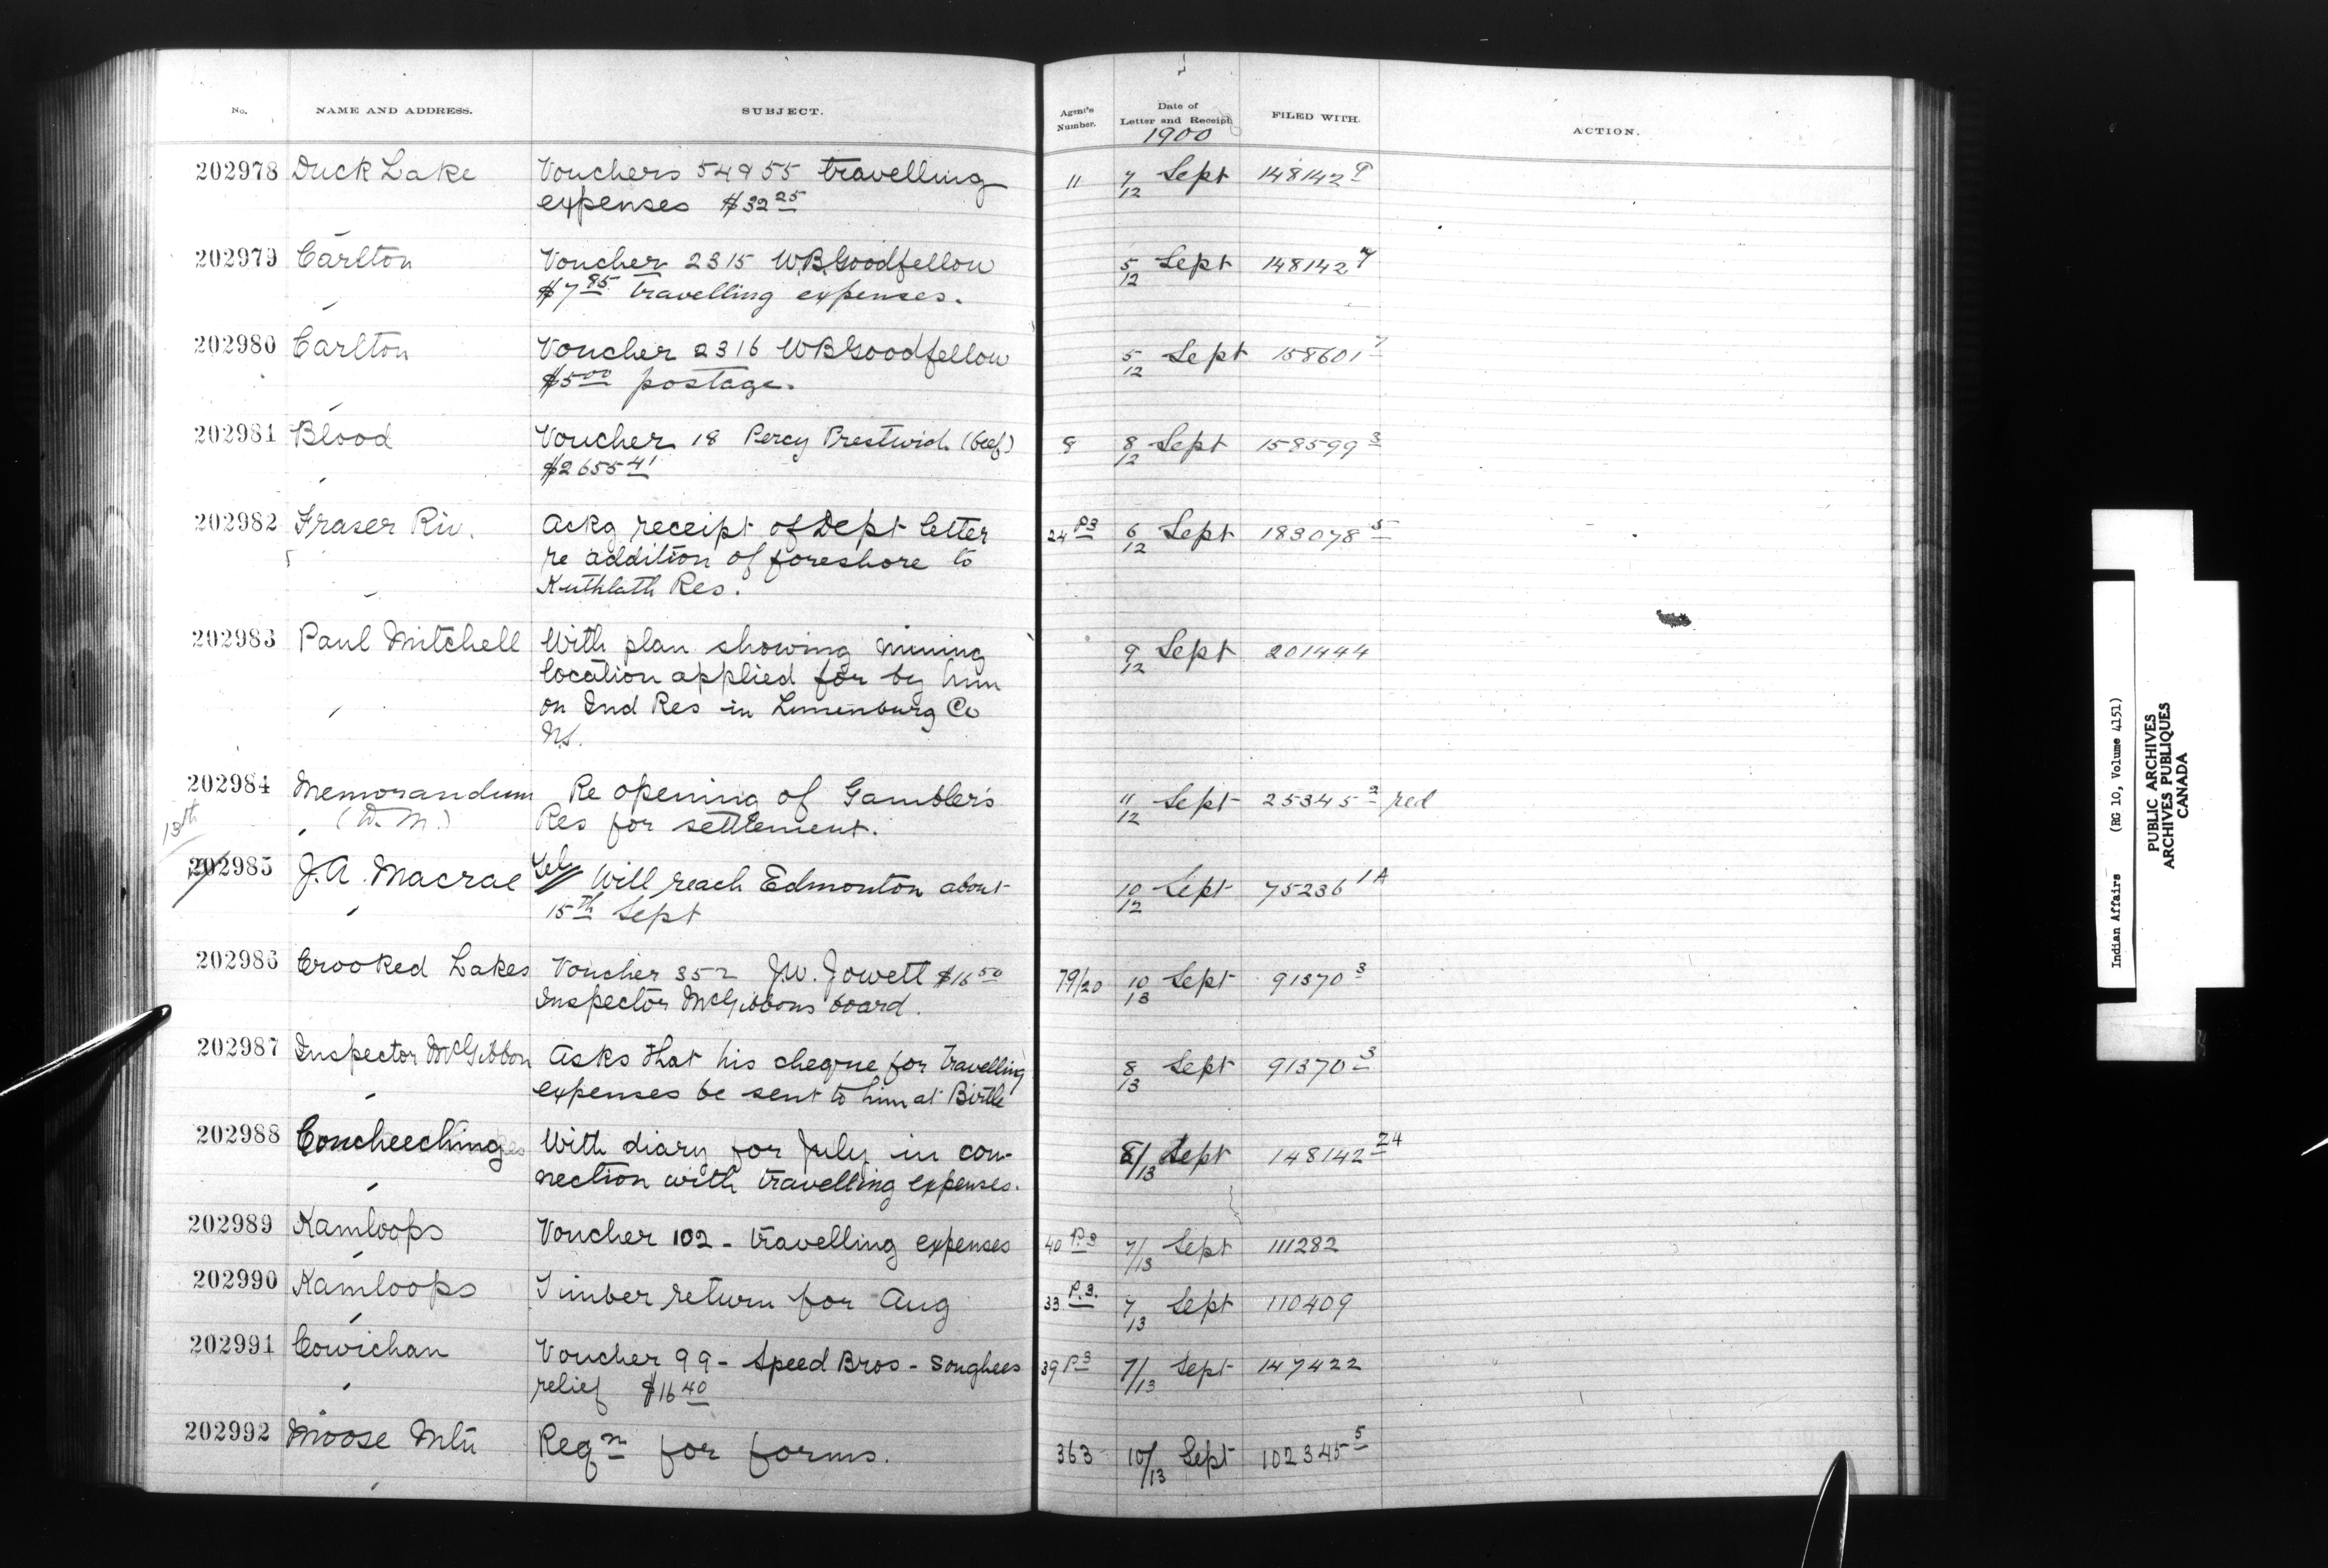 No. NAME AND ADDRESS. SUBJECT. Agent's Number. Date of Letter and Receipt FILED WITH. ACTION.
1900
202978 Duck Lake Vouchers 54 & 55 travelling 11 7/12 Sept 148142 9
expenses $32 25
202979 Carlton Voucher 2315 W.B. Goodfellow 5/12 Sept 148142 7
$7 85 travelling expenses.
202980 Carlton Voucher 2316 WB Goodfellow 5/12 Sept 158601 7
$5 00 postage.
202981 Blood Voucher 18 Percy Prestwich (beef) 9 8/12 Sept 158599 3
$2655 41
202982 Fraser Riv. Ackg receipt of Dept letter 24 P3 6/12 Sept 183078 5
re addition of foreshore to
Kuthlath Res.
202983 Paul Mitchell With plan showing mining 9/12 Sept 201444
location applied for by him
on Ind Res in Lunenburg Co
N.S.
202984 Memorandum Re opening of Gambler's 11/12 Sept 25345 2 red
13th (D. M.) Res for settlement.
202985 J.A. Macrae Tel Will reach Edmonton about 10/12 Sept 75236 1A
15th Sept
202986 Crooked Lakes Voucher 352 J.W. Jowett $16 50 79/20 10/13 Sept 91370 3
Inspector McGibbons board.
202987 Inspector McGibbon Asks that his cheque for travelling 8/13 Sept 91370 3
expenses be sent to him at Birtle
202988 Coucheeching With diary for July in con- 8/13 Sept 148142 24
nection with travelling expenses.
202989 Kamloops Voucher 102 - travelling expenses 40 P.3 7/13 Sept 111282
202990 Kamloops Timber return for Aug 33 P.3. 7/13 Sept 110409
202991 Cowichan Voucher 99 - Speed Bros - Songhees 39 P3 7/13 Sept 147422
relief $16 40
202992 Moose Mtn Reqn for forms. 363 10/13 Sept 102345 5
Indian Affairs (RG 10, Volume 4151)
PUBLIC ARCHIVES
ARCHIVES PUBLIQUES
CANADA